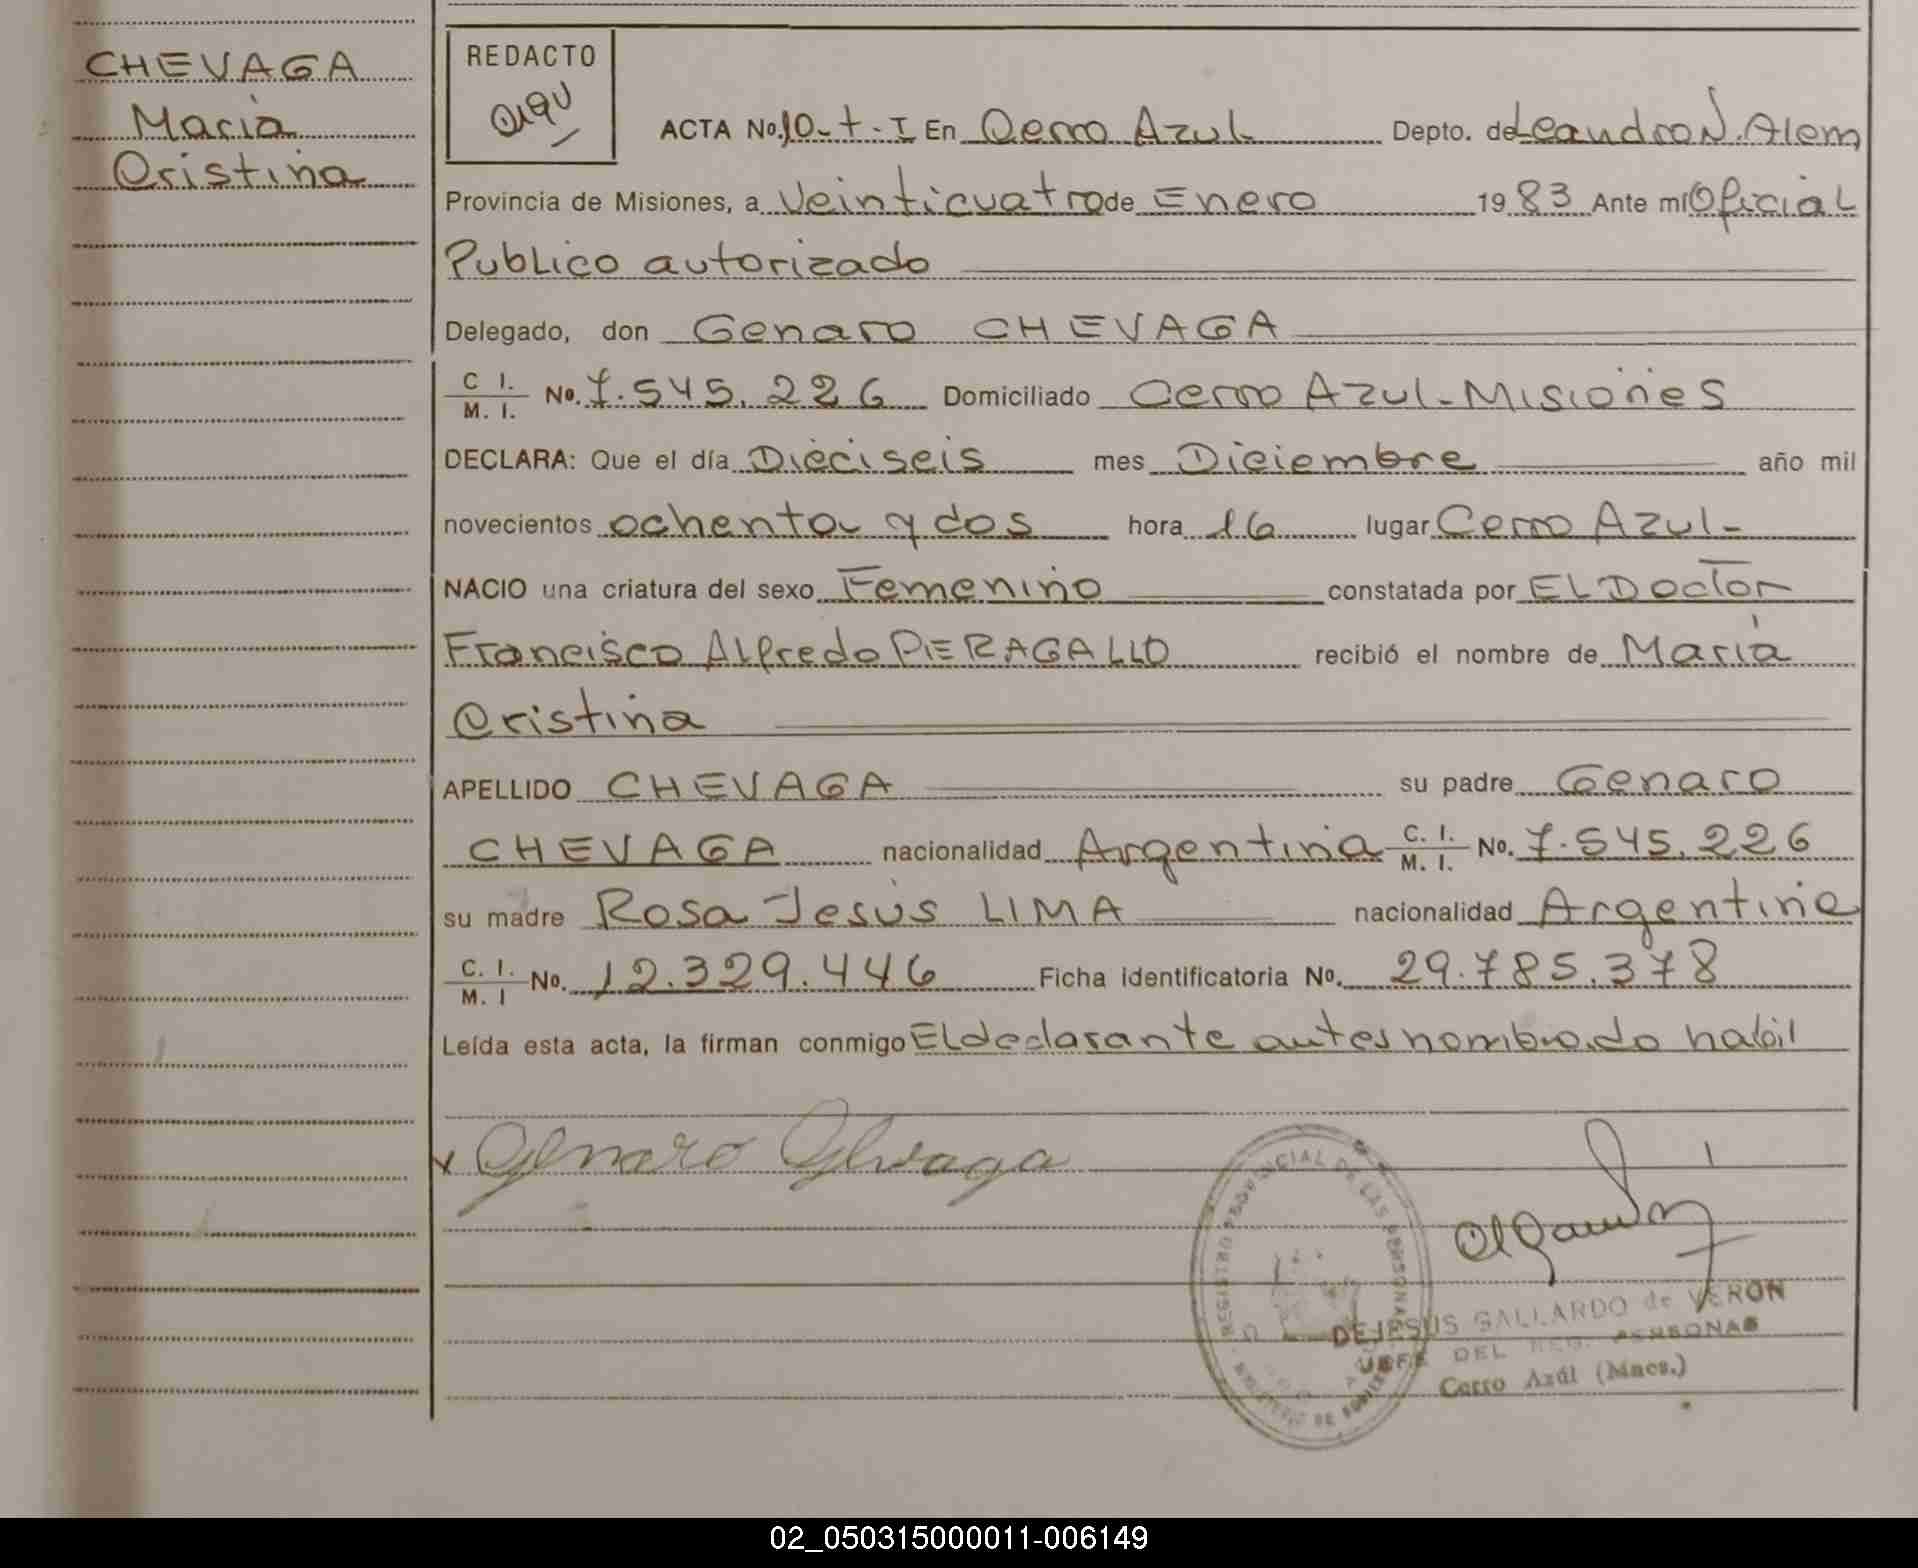 CHEVAGA
Maria
Cristina
REDACTO
ACTA No. 10-t-I En Cerro Azul Depto. de Leandro N. Alem
Provincia de Misiones, a Veinticuatro de Enero 1983 Ante mí Oficial
Publico autorizado
Delegado, don Genaro CHEVAGA
C I. / M. I. No. 7.545.226 Domiciliado Cerro Azul-Misiones
DECLARA: Que el día Dieciseis mes Diciembre año mil
novecientos ochenta y dos hora 16 lugar Cerro Azul-
NACIO una criatura del sexo Femenino constatada por EL Doctor
Francisco Alfredo PERAGALLO recibió el nombre de Maria
Cristina
APELLIDO CHEVAGA su padre Genaro
CHEVAGA nacionalidad Argentina C. I. / M. I. No. 7.545.226
su madre Rosa Jesús LIMA nacionalidad Argentina
C. I. / M. I No. 12.329.446 Ficha identificatoria No. 29.785.378
Leída esta acta, la firman conmigo El declarante antes nombrado habil
x Genaro Chevaga
REGISTRO PROVINCIAL DE LAS PERSONAS
MINISTERIO DE GOBIERNO
DEJESUS GALLARDO de VERON
JEFE DEL REG. PERSONAS
Cerro Azúl (Mnes.)
02_050315000011-006149